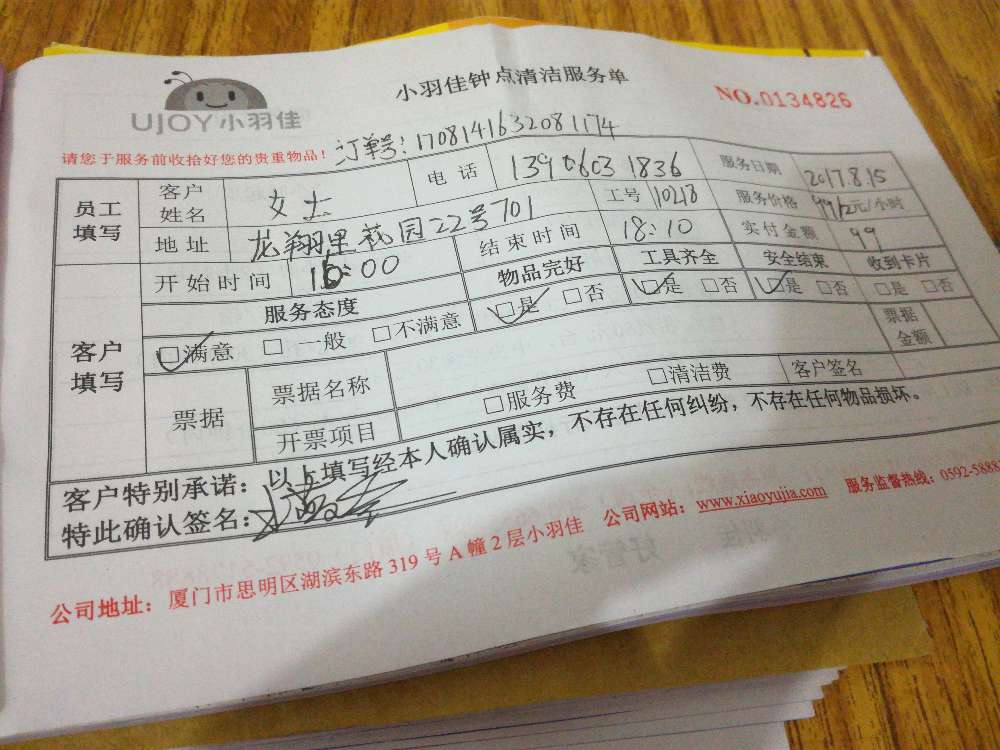 小羽佳钟点清洁服务单
NO.0134826
UJOY小羽佳
请您于服务前收拾好您的贵重物品！
订单号：1708141632081174
员工填写 客户姓名 女士 电话 13906031836 服务日期 2017.8.15
地址 龙翔里花园22号701 工号 10218 服务价格 元/小时
开始时间 16:00 结束时间 18:10 实付金额 99
客户填写 服务态度 物品完好 工具齐全 安全结束 收到卡片
□满意 □一般 □不满意 □是 □否 □是 □否 □是 □否 □是 □否
票据 票据名称 票据金额
开票项目 □服务费 □清洁费 客户签名
客户特别承诺：以上填写经本人确认属实，不存在任何纠纷，不存在任何物品损坏。
特此确认签名：
公司地址：厦门市思明区湖滨东路319号A幢2层小羽佳 公司网站：www.xiaoyujia.com 服务监督热线：0592-5888